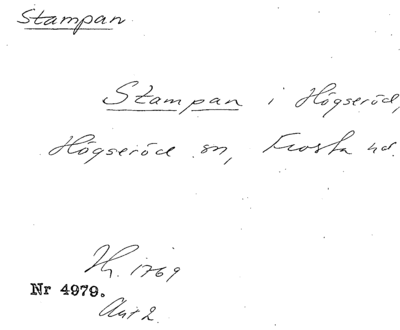 Stampan
Stampan i Högseröd,
Högseröd sn, Frosta hd.
Hr. 1769
Nr 4979.
Akt 2.